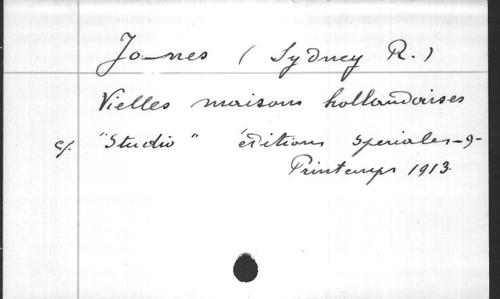 Jones (Sydney R.)
Vielles maisons hollandaises
cf. "Studio" éditions speciales-9-
Printemps 1913